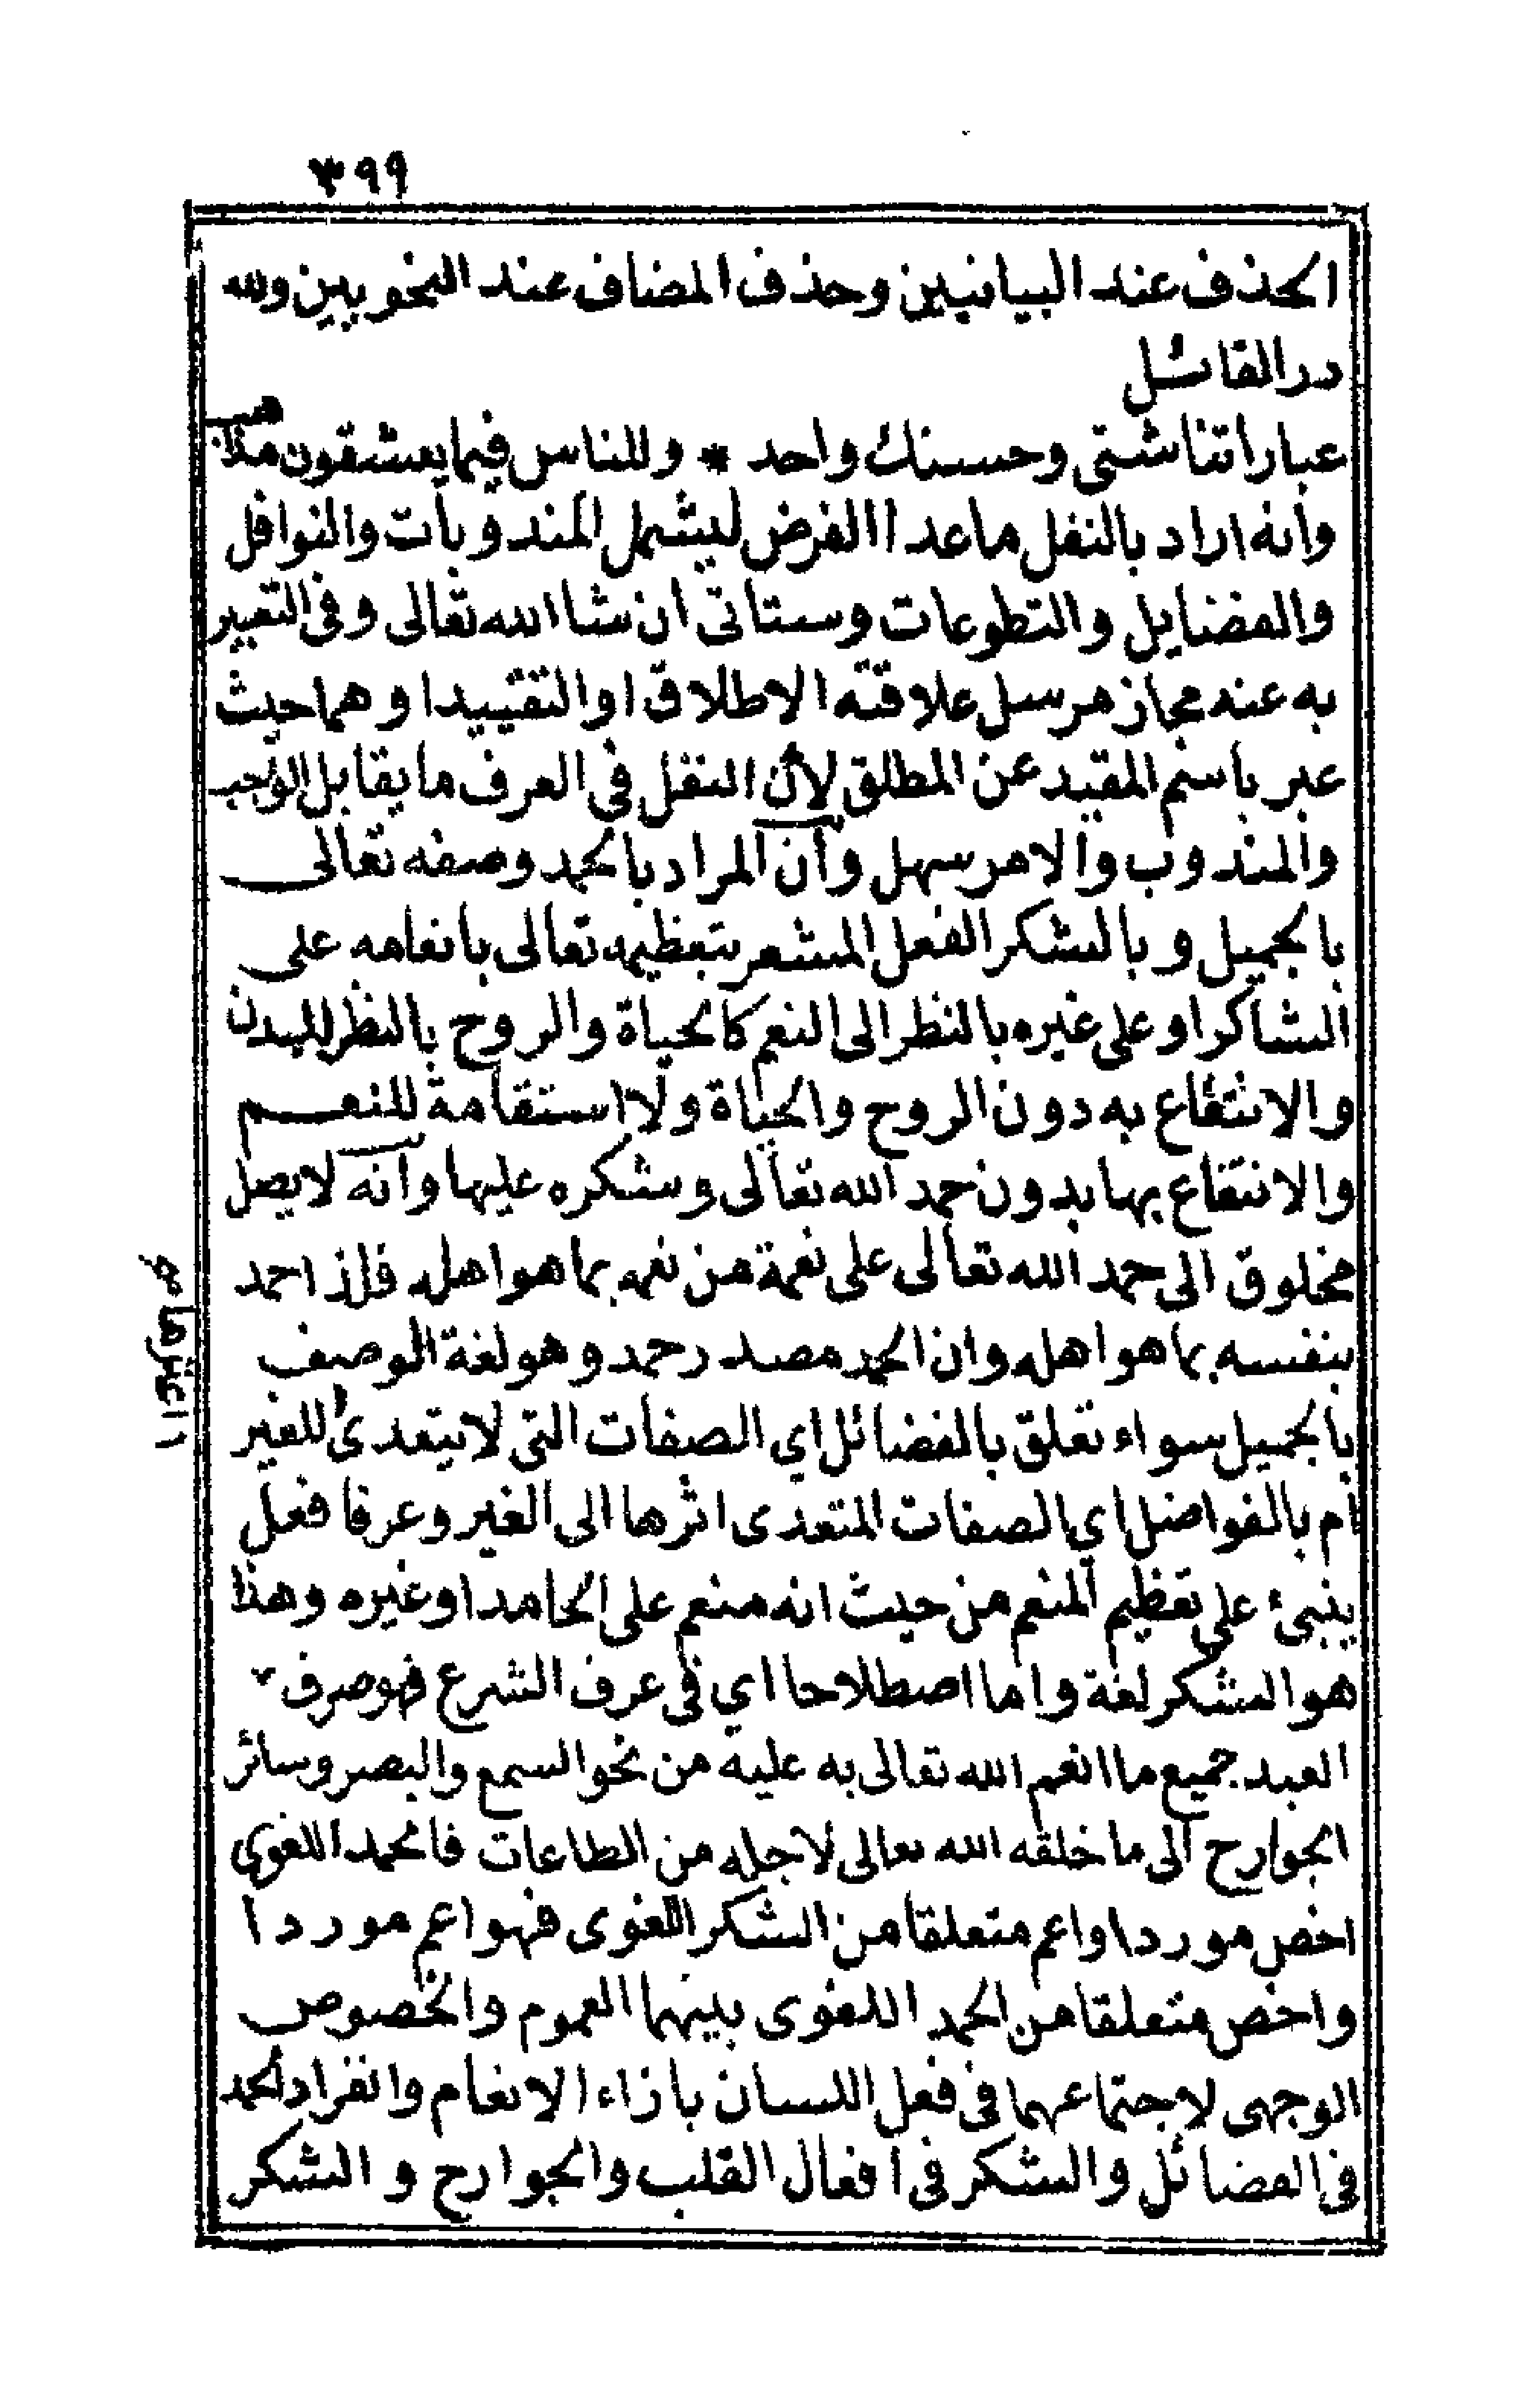 ٣٩٩
الحذف عند البيانيين وحذف المضاف عند النحويين ولله
در القائل
عباراتنا شتى وحسنك واحد * وللناس فيما يعشقون مذاهب
وأنه اراد بالنفل ماعدا الفرض ليشمل المندوبات والنوافل
والفضايل والتطوعات وستاتى ان شاالله تعالى وفى التعبير
به عنه مجاز مرسل علاقته الاطلاق او التقييد او هما حيث
عبر باسم المقيد عن المطلق لأن النفل فى العرف ما يقابل الواجب
والمندوب والامر سهل وأن المراد بالحمد وصفه تعالى
بالجميل وبالشكر الفعل المشعر بتعظيمه تعالى بانعامه على
الشاكر او على غيره بالنظر الى النعم كالحياة والروح بالنظر للبدن
والانتفاع به دون الروح والحياة ولا استقامة للنعم
والانتفاع بها بدون حمد الله تعالى وشكره عليها وأنه لا يصل
مخلوق الى حمد الله تعالى على نعمة من نعمه بما هو اهله فلذ احمد
بنفسه بما هو اهله وان الحمد مصدر حمد وهو لغة الوصف
بالجميل سواء تعلق بالفضائل اي الصفات التى لا يتعدى للغير
ام بالفواضل اي الصفات المتعدى اثرها الى الغير وعرفا فعل
ينبئ على تعظيم المنعم من حيث انه منعم على الحامد او غيره وهذا
هو الشكر لغة واما اصطلاحا اي فى عرف الشرع فهو صرف
العبد جميع ما انعم الله تعالى به عليه من نحو السمع والبصر وسائر
الجوارح الى ما خلقه الله تعالى لاجله من الطاعات فالحمد اللغوي
اخص موردا واعم متعلقا من الشكر اللغوى فهو اعم موردا
واخص متعلقا من الحمد اللغوى بينهما العموم والخصوص
الوجهى لاجتماعهما فى فعل اللسان بازاء الانعام وانفراد الحمد
فى الفضائل والشكر فى افعال القلب والجوارح والشكر